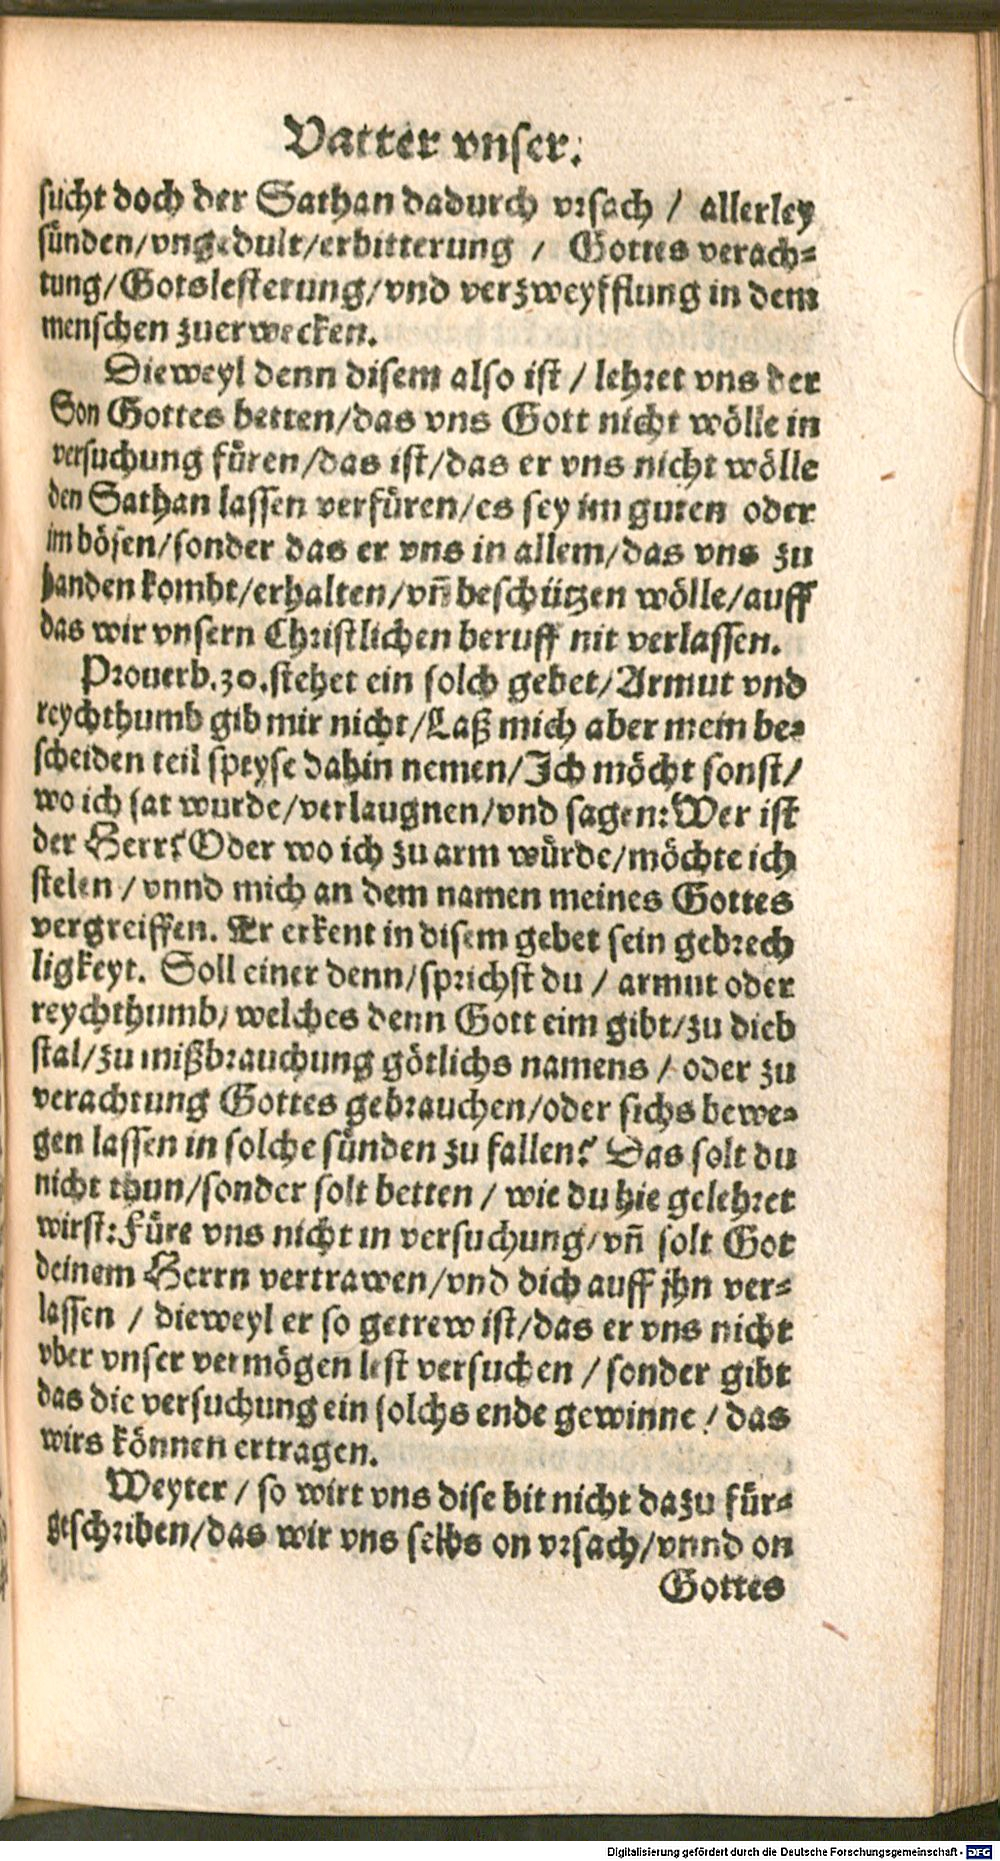 Vatter vnser.
sucht doch der Sathan dadurch vrsach / allerley
sünden/vngedult/erbitterung / Gottes verach⸗
tung/Gotslesterung/vnd verzweyfflung in dem
menschen zuerwecken.
Dieweyl denn disem also ist / lehret vns der
Son Gottes betten/das vns Gott nicht wölle in
versuchung füren/das ist/das er vns nicht wölle
den Sathan lassen verfüren/es sey im guten oder
im bösen/sonder das er vns in allem/das vns zu
handen kombt/erhalten/vñ beschützen wölle/auff
das wir vnsern Christlichen beruff nit verlassen.
Prouerb.30.stehet ein solch gebet/Armut vnd
reychthumb gib mir nicht/Laß mich aber mein be⸗
scheiden teil speyse dahin nemen/Ich möcht sonst/
wo ich sat wurde/verlaugnen/vnd sagen: Wer ist
der Herr? Oder wo ich zu arm würde/möchte ich
stelen / vnnd mich an dem namen meines Gottes
vergreiffen. Er erkent in disem gebet sein gebrech
ligkeyt. Soll einer denn/sprichst du / armut oder
reychthumb/ welches denn Gott eim gibt/zu dieb
stal/zu mißbrauchung götlichs namens / oder zu
verachtung Gottes gebrauchen/oder sichs bewe⸗
gen lassen in solche sünden zu fallen? Das solt du
nicht thun/sonder solt betten / wie du hie gelehret
wirst: Füre vns nicht in versuchung/vñ solt Got
deinem Herrn vertrawen/vnd dich auff jhn ver⸗
lassen / dieweyl er so getrew ist/das er vns nicht
vber vnser vermögen lest versuchen / sonder gibt
das die versuchung ein solchs ende gewinne / das
wirs können ertragen.
Weyter / so wirt vns dise bit nicht dazu für⸗
geschriben/das wir vns selbs on vrsach/vnnd on
Gottes
Digitalisierung gefördert durch die Deutsche Forschungsgemeinschaft - DFG